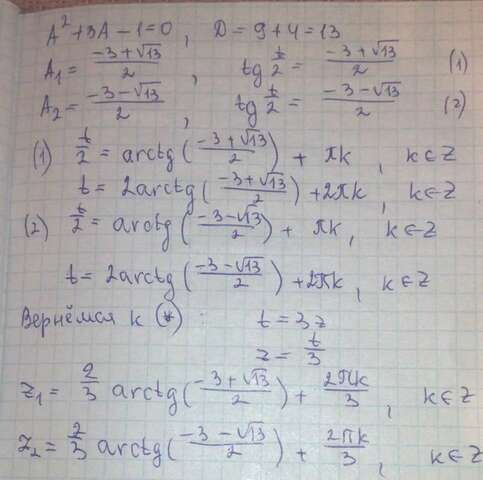 A² + 3A − 1 = 0, D = 9 + 4 = 13
A₁ = (−3 + √13)/2, tg t/2 = (−3 + √13)/2 (1)
A₂ = (−3 − √13)/2, tg t/2 = (−3 − √13)/2 (2)
(1) t/2 = arctg((−3 + √13)/2) + πk, k ∈ Z
t = 2arctg((−3 + √13)/2) + 2πk, k ∈ Z
(2) t/2 = arctg((−3 − √13)/2) + πk, k ∈ Z
t = 2arctg((−3 − √13)/2) + 2πk, k ∈ Z
Вернёмся к (*): t = 3z
z = t/3
z₁ = 2/3 arctg((−3 + √13)/2) + 2πk/3, k ∈ Z
z₂ = 2/3 arctg((−3 − √13)/2) + 2πk/3, k ∈ Z